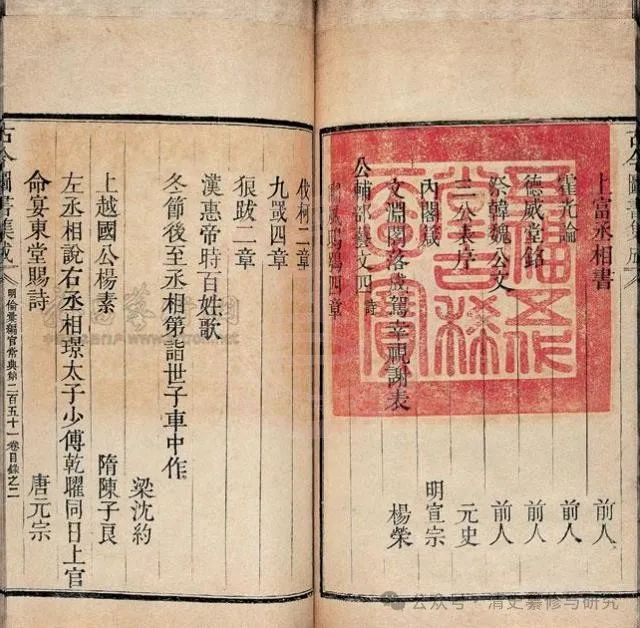 古今圖書集成
上富丞相書 前人
霍光論 前人
德威堂銘 前人
祭韓魏公文 前人
三公表序 元史
內閣箴 明宣宗
文淵閣落成駕幸視謝表 楊榮
公輔部藝文四 詩
鴟鴞四章
五福五代堂古稀天子寶
伐柯二章
九罭四章
狼跋二章
漢惠帝時百姓歌
冬節後至丞相第詣世子車中作 梁沈約
上越國公楊素 隋陳子良
左丞相說右丞相璟太子少傅乾曜同日上官
命宴東堂賜詩 唐元宗
古今圖書集成 明倫彙編官常典第二百五十一卷目錄之二
公众号·清史纂修与研究